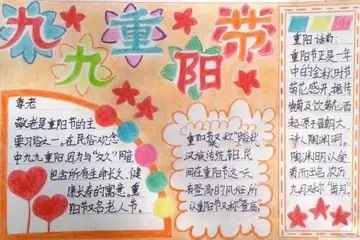 九九重阳节
尊老
敬老是重阳节的主
要习俗之一。在民俗观念
中九九重阳,因为与"久久"同音,
包含所有生命长久、健
康长寿的寓意,重
阳节又名老人节。
重阳节又称"踏秋"
汉族传统节日,民
间在重阳节这一天
有登高的风俗,所
以重阳节又称"登高
重阳诗勤:
重阳节正是一年
中的金秋时节
菊花盛开,据传
赏菊及饮菊花酒
起源于晋朝大
诗人陶渊明。
陶渊明以爱
菊而出名,农历
九月俗称"菊月"。